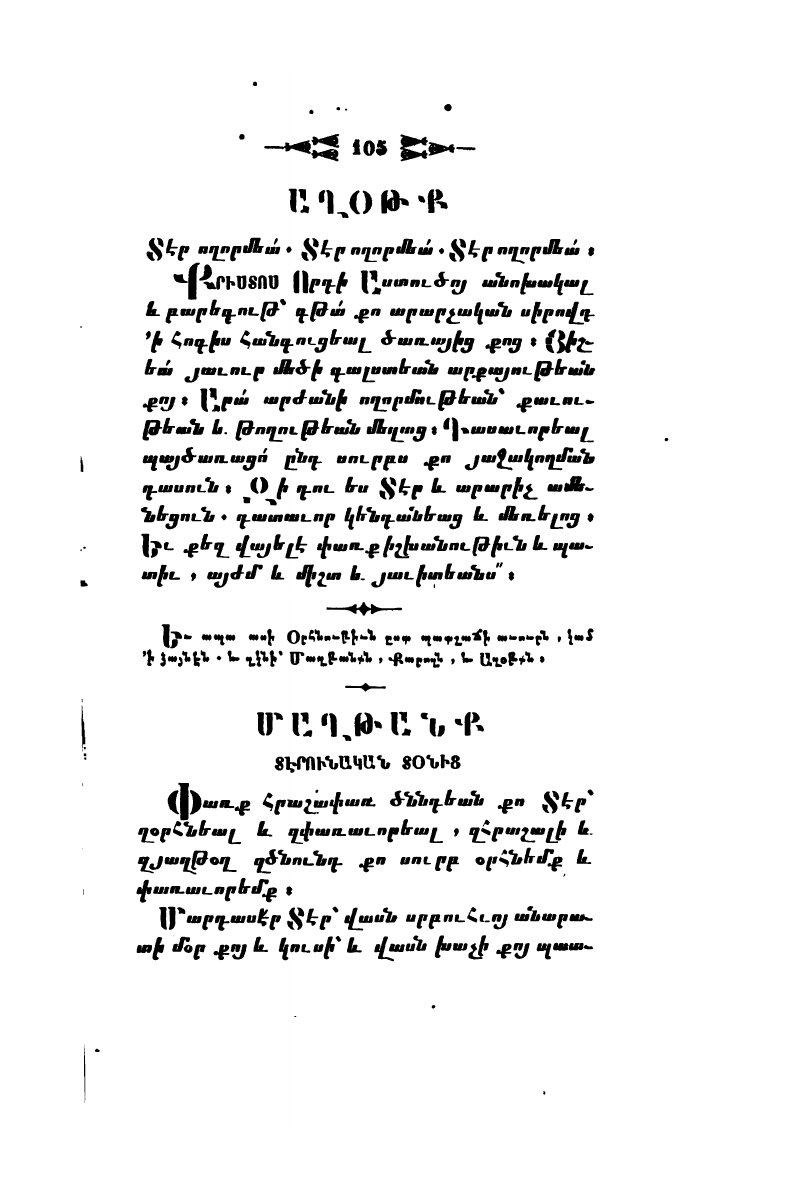 105
ԱՂՕԹՔ
Տէր ողորմեա՛ · Տէր ողորմեա՛ · Տէր ողորմեա՛ ։
ՔՐԻՍՏՈՍ Որդի Աստուծոյ անոխակալ
և բարեգութ՝ գթա՛ քո արարչական սիրովդ
՚ի հոգիս հանգուցեալ ծառայից քոց ։ Յիշ-
եա՛ յաւուր մեծի գալստեան արքայութեան
քոյ ։ Արա՛ արժանի ողորմութեան՝ քաւու-
թեան և թողութեան մեղաց ։ Դասաւորեալ
պայծառացո՛ ընդ սուրբս քո յաջակողման
դասուն ։ Զի դու ես Տէր և արարիչ ամե-
նեցուն · դատաւոր կենդանեաց և մեռելոց ։
Եւ քեզ վայելէ փառք իշխանութիւն և պա-
տիւ , այժմ և միշտ և յաւիտեանս՞ ։
Եւ ապա ասի Օրհնութիւն ըստ պատշաճի աւուրն , կամ
՚ի չայնէն · և զկնի՝ Մաղթանքն , Քարոզն , և Աղօթքն ։
ՄԱՂԹԱՆՔ
ՏԷՐՈՒՆԱԿԱՆ ՏՕՆԻՑ
Փառք հրաշափառ ծննդեան քո Տէր՝
ղօրհնեալ և զփառաւորեալ , զհրաշալի և
զյաղթօղ զծնունդ քո սուրբ օրհնեմք և
փառաւորեմք ։
Մարդասէր Տէր՝ վասն սրբուհւոյ անարա-
տի մօր քոյ և կուսի՝ և վասն խաչի քոյ պատ-